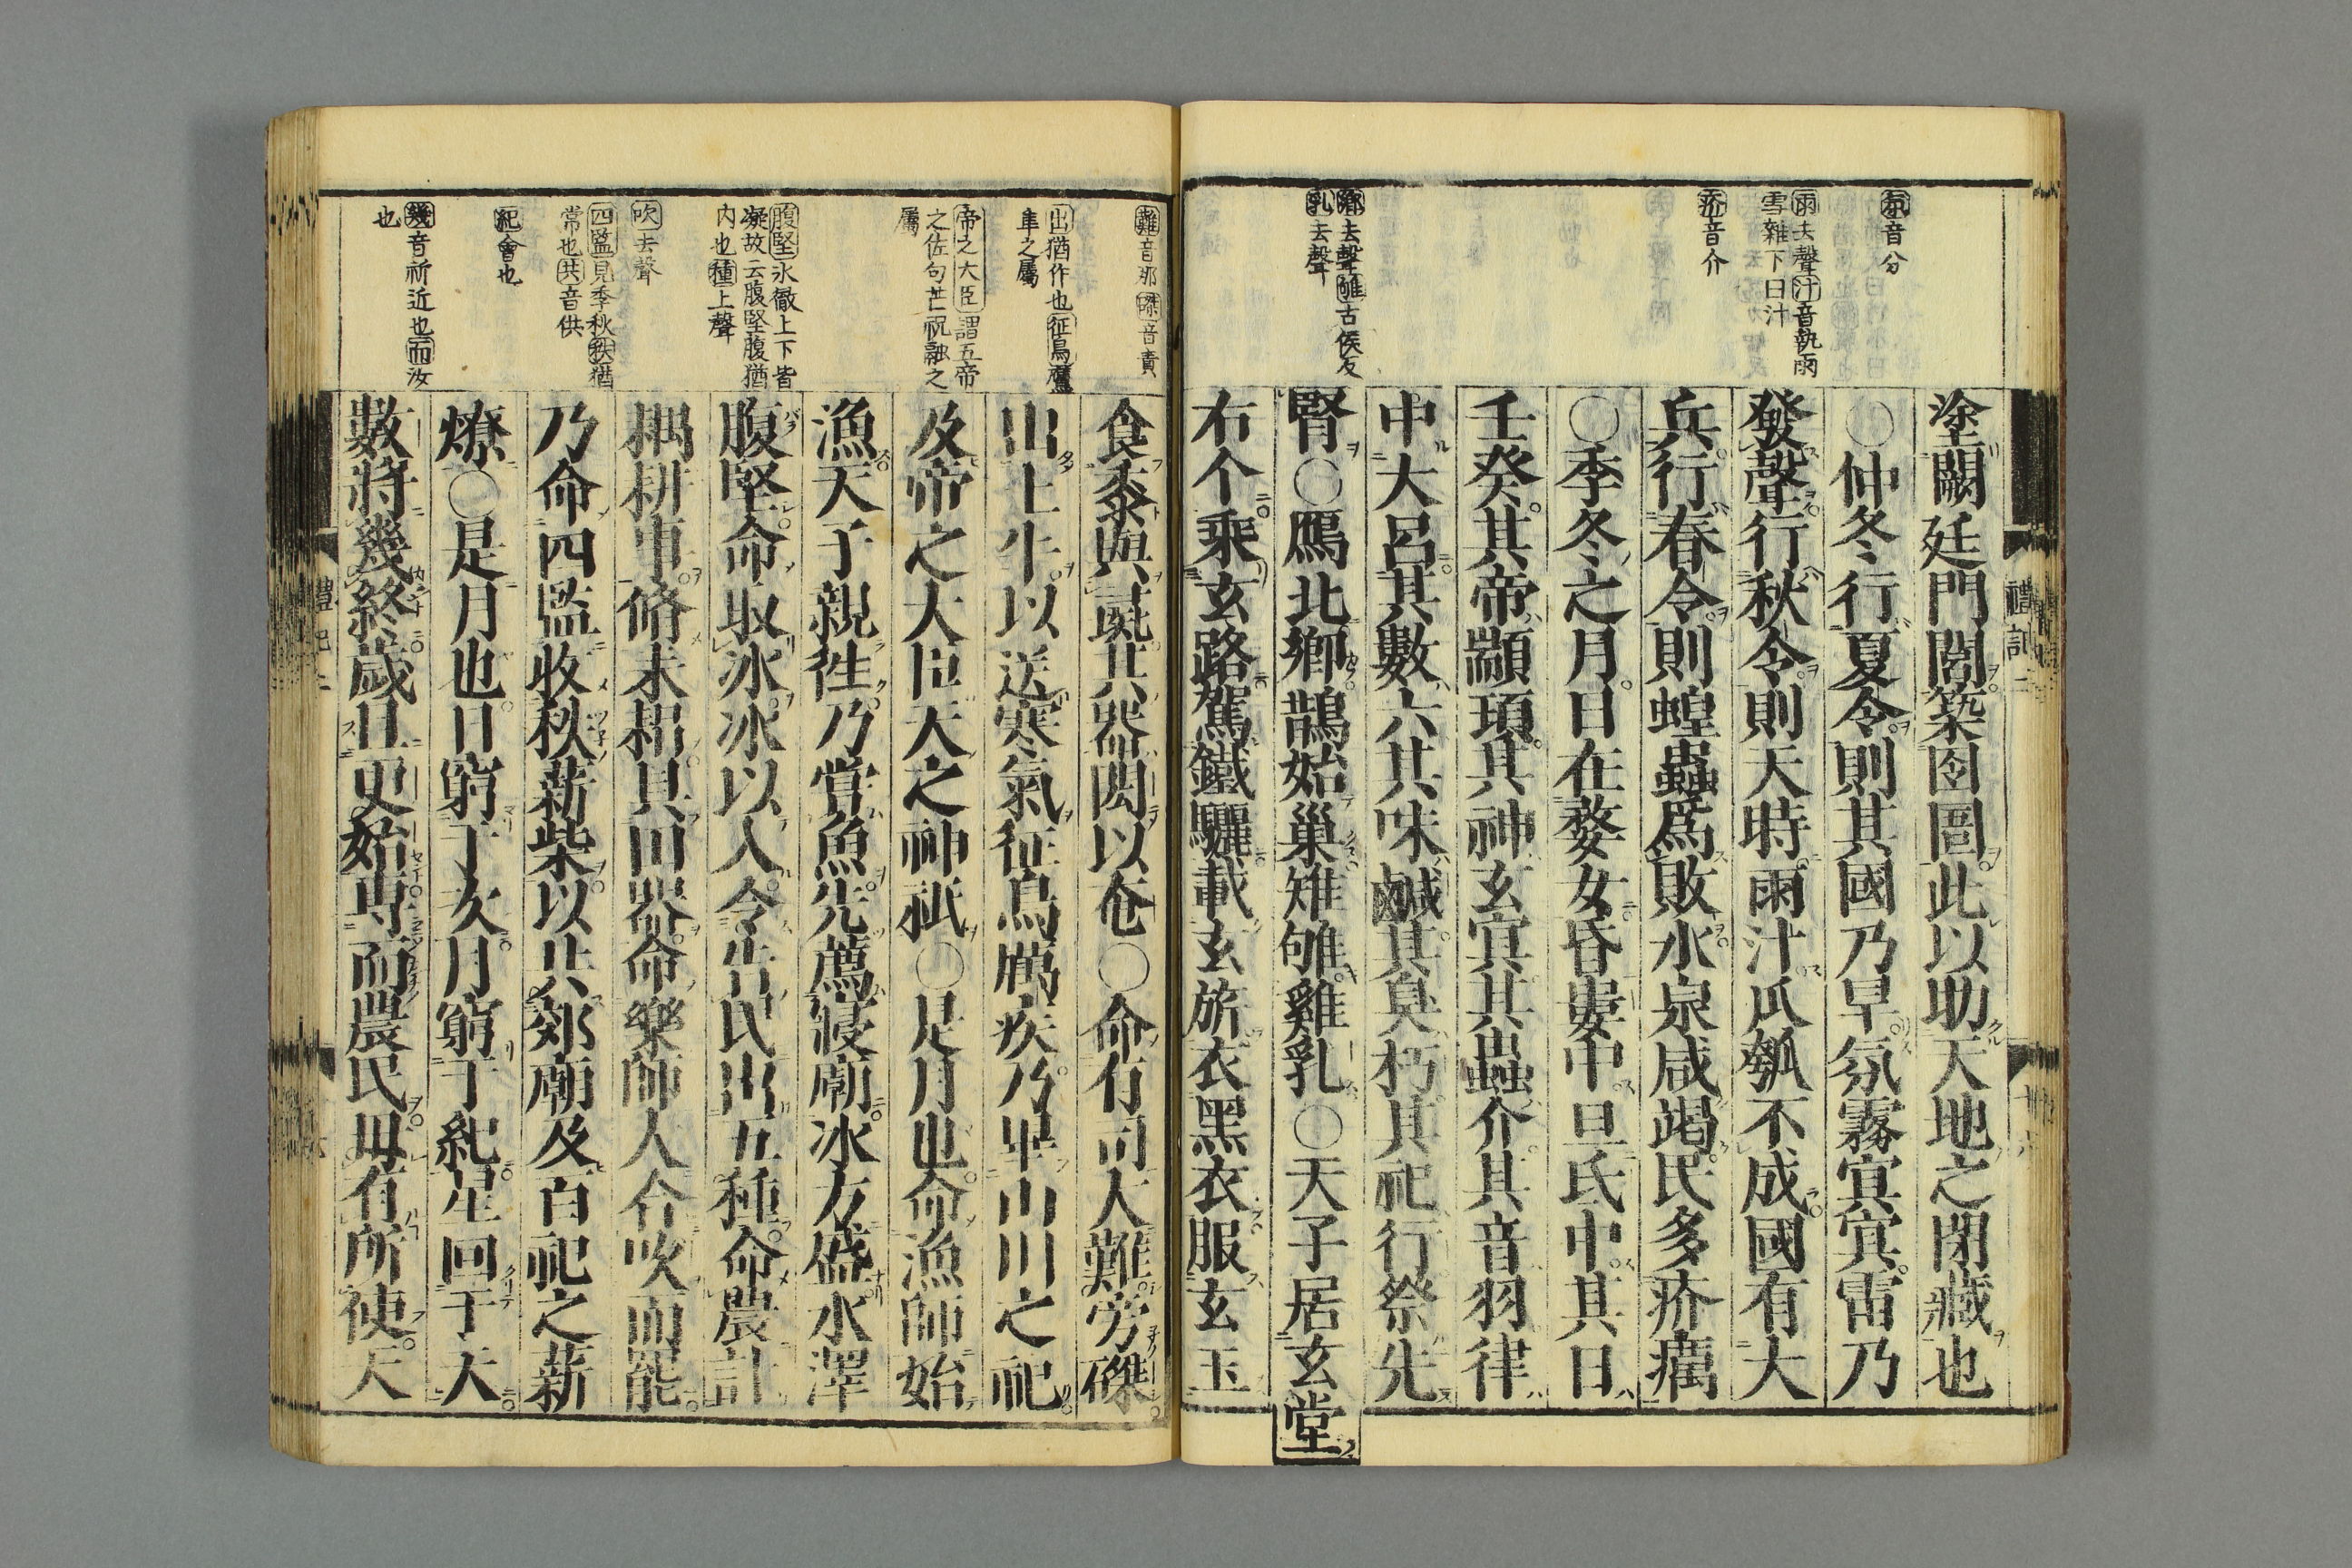 氛音分
雨去聲汁音執雨
雪雜下曰汁
疥音介
鄕去聲雊古侯反
乳去聲
塗闕廷門閭築囹圄此以助天地之閉藏也
〇仲冬行夏令則其國乃旱氛霧冥冥雷乃
發聲行秋令則天時雨汁瓜瓠不成國有大
兵行春令則蝗蟲爲敗水泉咸竭民多疥癘
〇季冬之月日在婺女昏婁中旦氐中其日
壬癸其帝顓頊其神玄冥其蟲介其音羽律
中大呂其數六其味鹹其臭朽其祀行祭先
腎〇鴈北鄕鵲始巢雉雊雞乳〇天子居玄堂
右个乘玄路駕鐵驪載玄旂衣黑衣服玄玉
禮記二
難音那磔音責
出猶作也征鳥鷹
隼之屬
帝之大臣謂五帝
之佐句芒祝融之
屬
腹堅氷徹上下皆
凝故云腹堅腹猶
内也種上聲
吹去聲
四監見季秋秩猶
常也共音供
紀會也
幾音祈近也而汝
也
食黍與彘其器閎以奄〇命有司大難旁磔
出土牛以送寒氣征鳥厲疾乃畢山川之祀
及帝之大臣天之神祇〇是月也命漁師始
漁天子親徃乃嘗魚先薦寢廟冰方盛水澤
腹堅命取冰冰以入令告民出五種命農計
耦耕事脩耒耜具田器命樂師大合吹而罷
乃命四監收秩薪柴以共郊廟及百祀之薪
燎〇是月也日窮于次月窮于紀星回于天
數將幾終歲且更始專而農民毋有所使天
禮記二